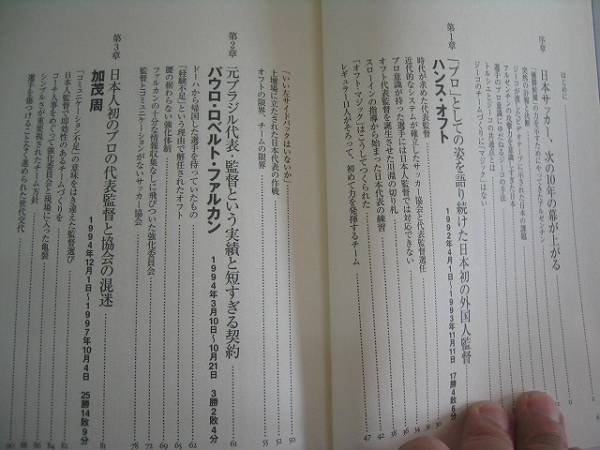 はじめに
序章
日本サッカー、次の10年の幕が上がる
第1章
「プロ」としての姿を語り続けた日本初の外国人監督
ハンス・オフト
1992年4月1日～1993年11月11日
時代が求めた代表監督
近代的なシステムが確立したサッカー協会と代表監督選任
プロ意識が持った選手には日本人監督では対応できない
オフト代表監督を誕生させた川淵の切り札
スローインの指導から始まった日本代表の練習
「オフト・マジック」はこうしてつくられた
レギュラー11人がそろって、初めて力を発揮するチーム
47
「いいたサイドバックはいないか」
50
土壇場に立たされた日本代表の作戦
52
オフトの限界、チームの限界
55
第2章
「元ブラジル代表」監督という実績と短すぎる契約
61
パウロ・ロベルト・ファルカン
1994年3月10日～10月21日
3勝2敗4分
ドーハから帰国した選手を待っていたもの
62
「経験不足」という理由で解任されたオフト
65
腰の据わらない強化体制
69
ファルカンの十分な情報収集なしに飛びついた強化委員会
72
監督とコミュニケーションがないサッカー協会
78
第3章
日本人初のプロの代表監督と協会の混迷
81
加茂 周
1994年12月1日～1997年10月4日
25勝14敗9分
「コミュニケーション不足」の意味をはき違えた監督選び
日本人監督で即効性のあるチームづくりを
コーチ人事をめぐって強化委員会と現場に入った亀裂
シンプルさが重要視されたチーム方針
選手を傷つけることなく進められた世代交代